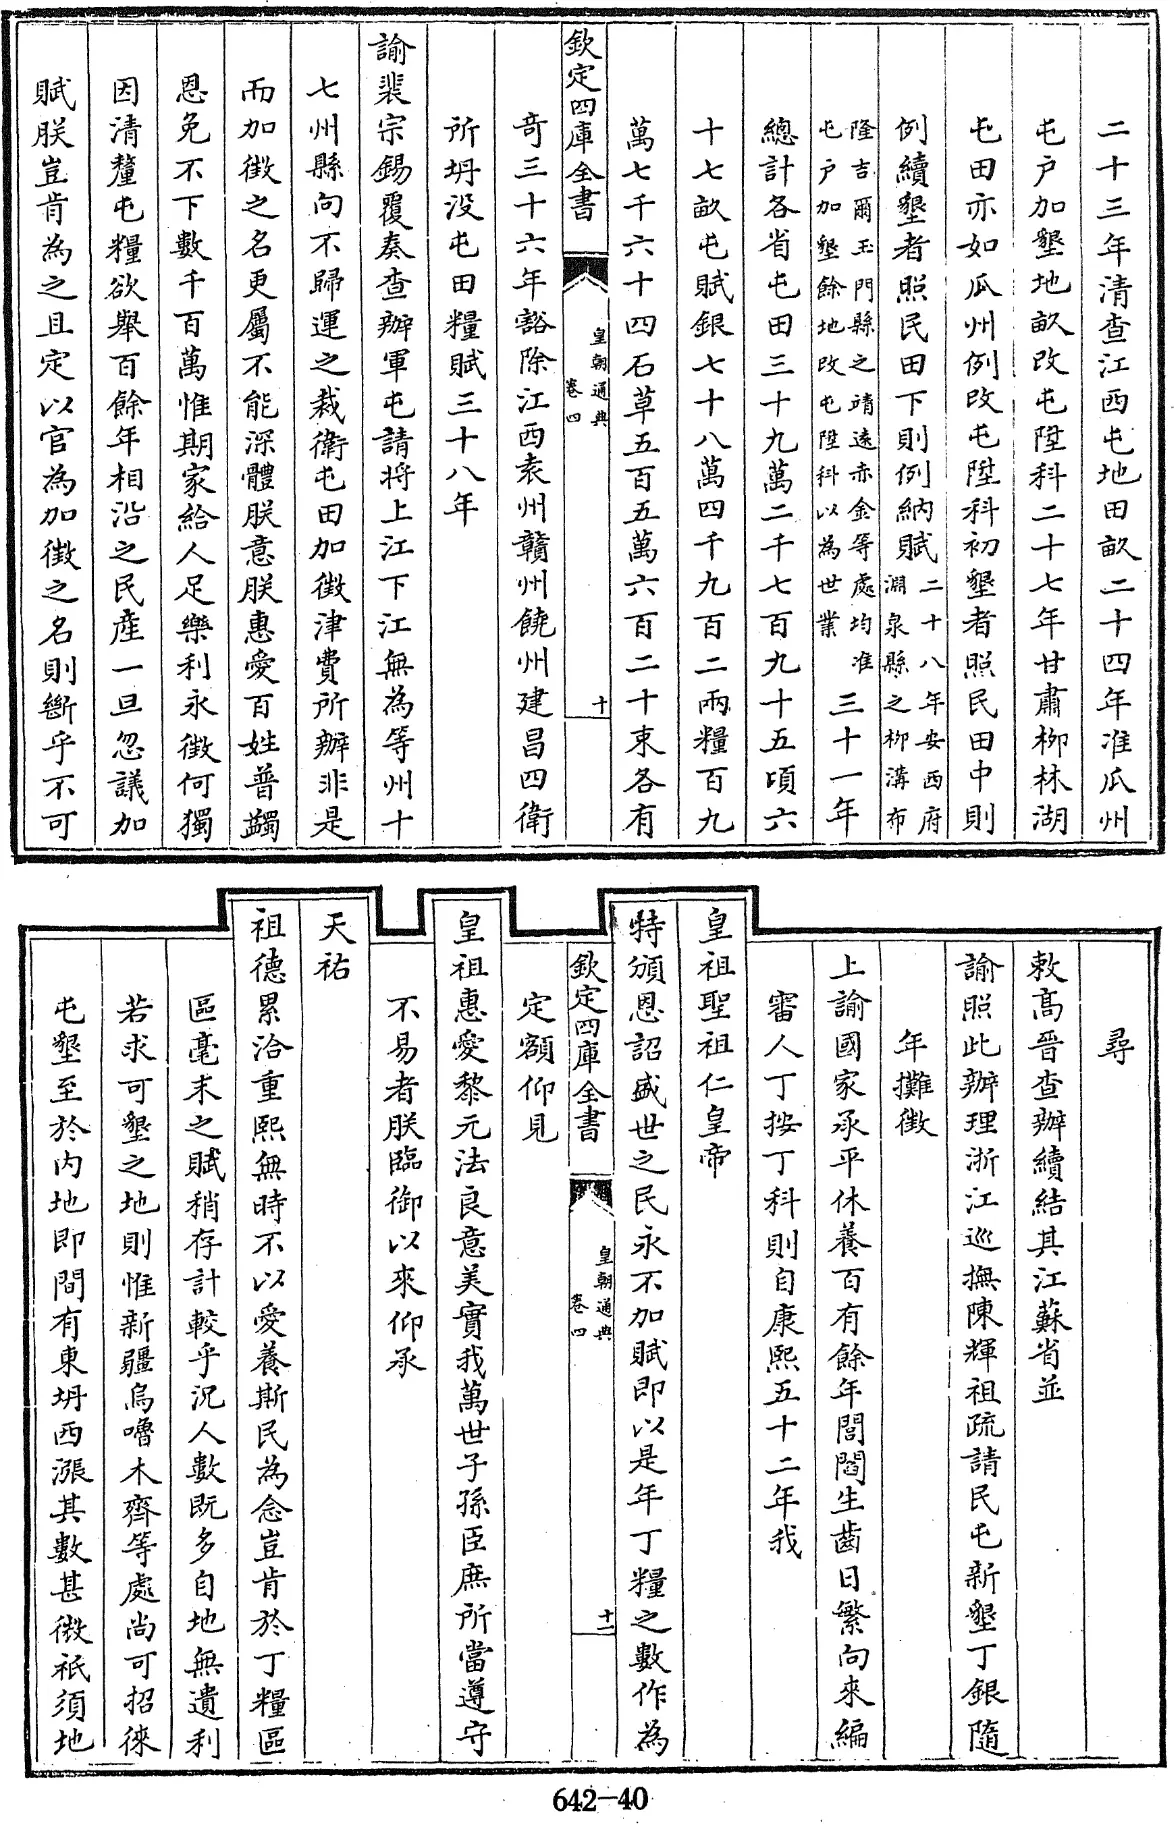 二十三年清查江西屯地田畝二十四年准瓜州
屯户加墾地畝改屯陞科二十七年甘肅柳林湖
屯田亦如瓜州例改屯陞科初墾者照民田中則
例續墾者照民田下則例納賦二十八年安西府
淵泉縣之柳溝布
隆吉爾玉門縣之靖逺赤金等處均准
屯户加墾餘地改屯陞科以為世業
三十一年
總計各省屯田三十九萬二千七百九十五頃六
十七畝屯賦銀七十八萬四千九百二兩糧百九
萬七千六十四石草五百五萬六百二十束各有
欽定四庫全書
皇朝通典
卷四
十
奇三十六年豁除江西袁州贛州饒州建昌四衛
所坍没屯田糧賦三十八年
諭裴宗錫覆奏查辦軍屯請将上江下江無為等州十
七州縣向不歸運之裁衛屯田加徴津費所辦非是
而加徴之名更屬不能深體朕意朕惠愛百姓普蠲
恩免不下數千百萬惟期家給人足樂利永徴何獨
因清釐屯糧欲舉百餘年相沿之民産一旦忽議加
賦朕豈肯為之且定以官為加徴之名則斷乎不可
尋
敕髙晉查辦續結其江蘇省並
諭照此辦理浙江巡撫陳輝祖疏請民屯新墾丁銀隨
年攤徴
上諭國家承平休養百有餘年閭閻生齒日繁向來編
審人丁按丁科則自康熙五十二年我
皇祖聖祖仁皇帝
特頒恩詔盛世之民永不加賦即以是年丁糧之數作為
欽定四庫全書
皇朝通典
卷四
十一
定額仰見
皇祖惠愛黎元法良意美實我萬世子孫臣庶所當遵守
不易者朕臨御以來仰承
天祐
祖德累洽重熙無時不以愛養斯民為念豈肯於丁糧區
區毫末之賦稍存計較乎況人數既多自地無遺利
若求可墾之地則惟新疆烏嚕木齊等處尚可招徠
屯墾至於内地即間有東坍西漲其數甚微祇須地
642-40